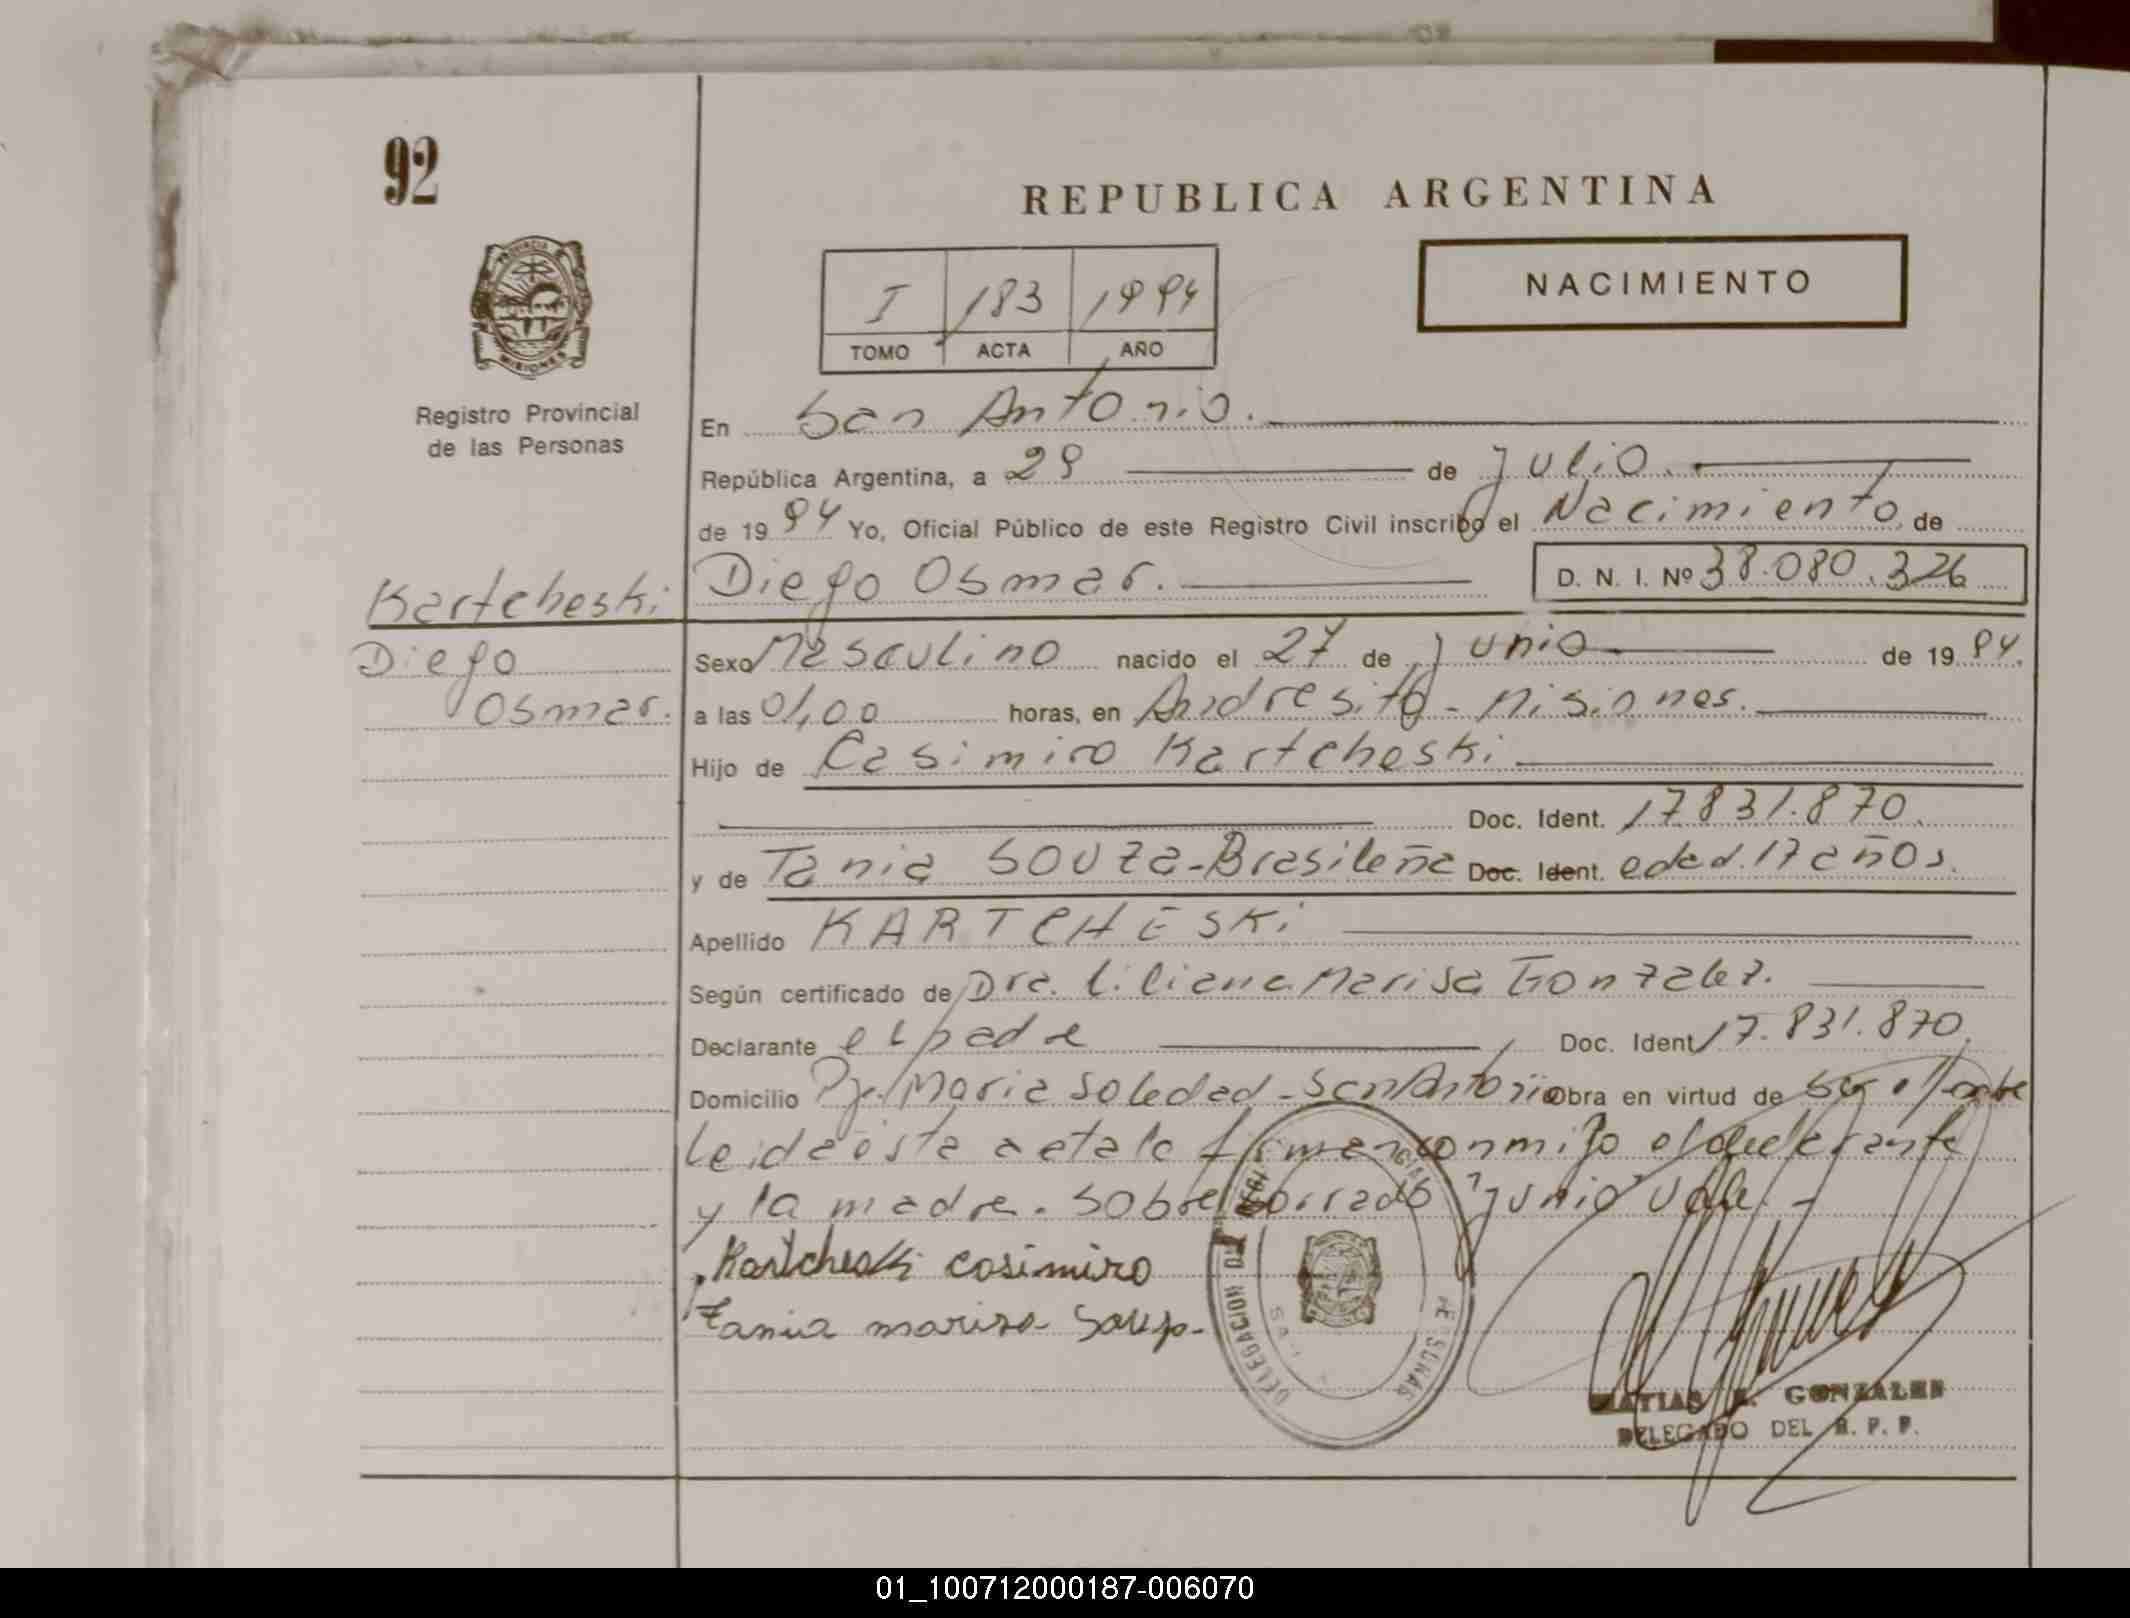 92
REPUBLICA ARGENTINA
NACIMIENTO
I 183 1994
TOMO ACTA AÑO
PROVINCIA DE MISIONES
Registro Provincial
de las Personas
En San Antonio.
República Argentina, a 29 de Julio.
de 1994 Yo, Oficial Público de este Registro Civil inscribo el Nacimiento, de
Diego Osmar. D. N. I. Nº 38.080.326
Kartcheski
Diego
Osmar.
Sexo Masculino nacido el 27 de junio de 1994.
a las 01,00 horas, en Andresito - Misiones.
Hijo de Casimiro Kartcheski
Doc. Ident. 17831.870.
y de Tania Souza-Brasileña Doc. Ident. edad.17 años.
Apellido KARTCHESKi
Según certificado de Dra. Liliana Marisa Gonzalez.
Declarante el padre Doc. Ident 17.831.870.
Domicilio Pje. Maria Soledad - San Antonio Obra en virtud de
Leida ésta acta la firman conmigo el declarante
y la madre. Sobre borrado "junio" vale. -
Kartcheski casimiro
Tania mariza Souza
DELEGACION DEL PERSONAS
MATIAS GONZALES
DELEGADO DEL R. P. P.
01_100712000187-006070